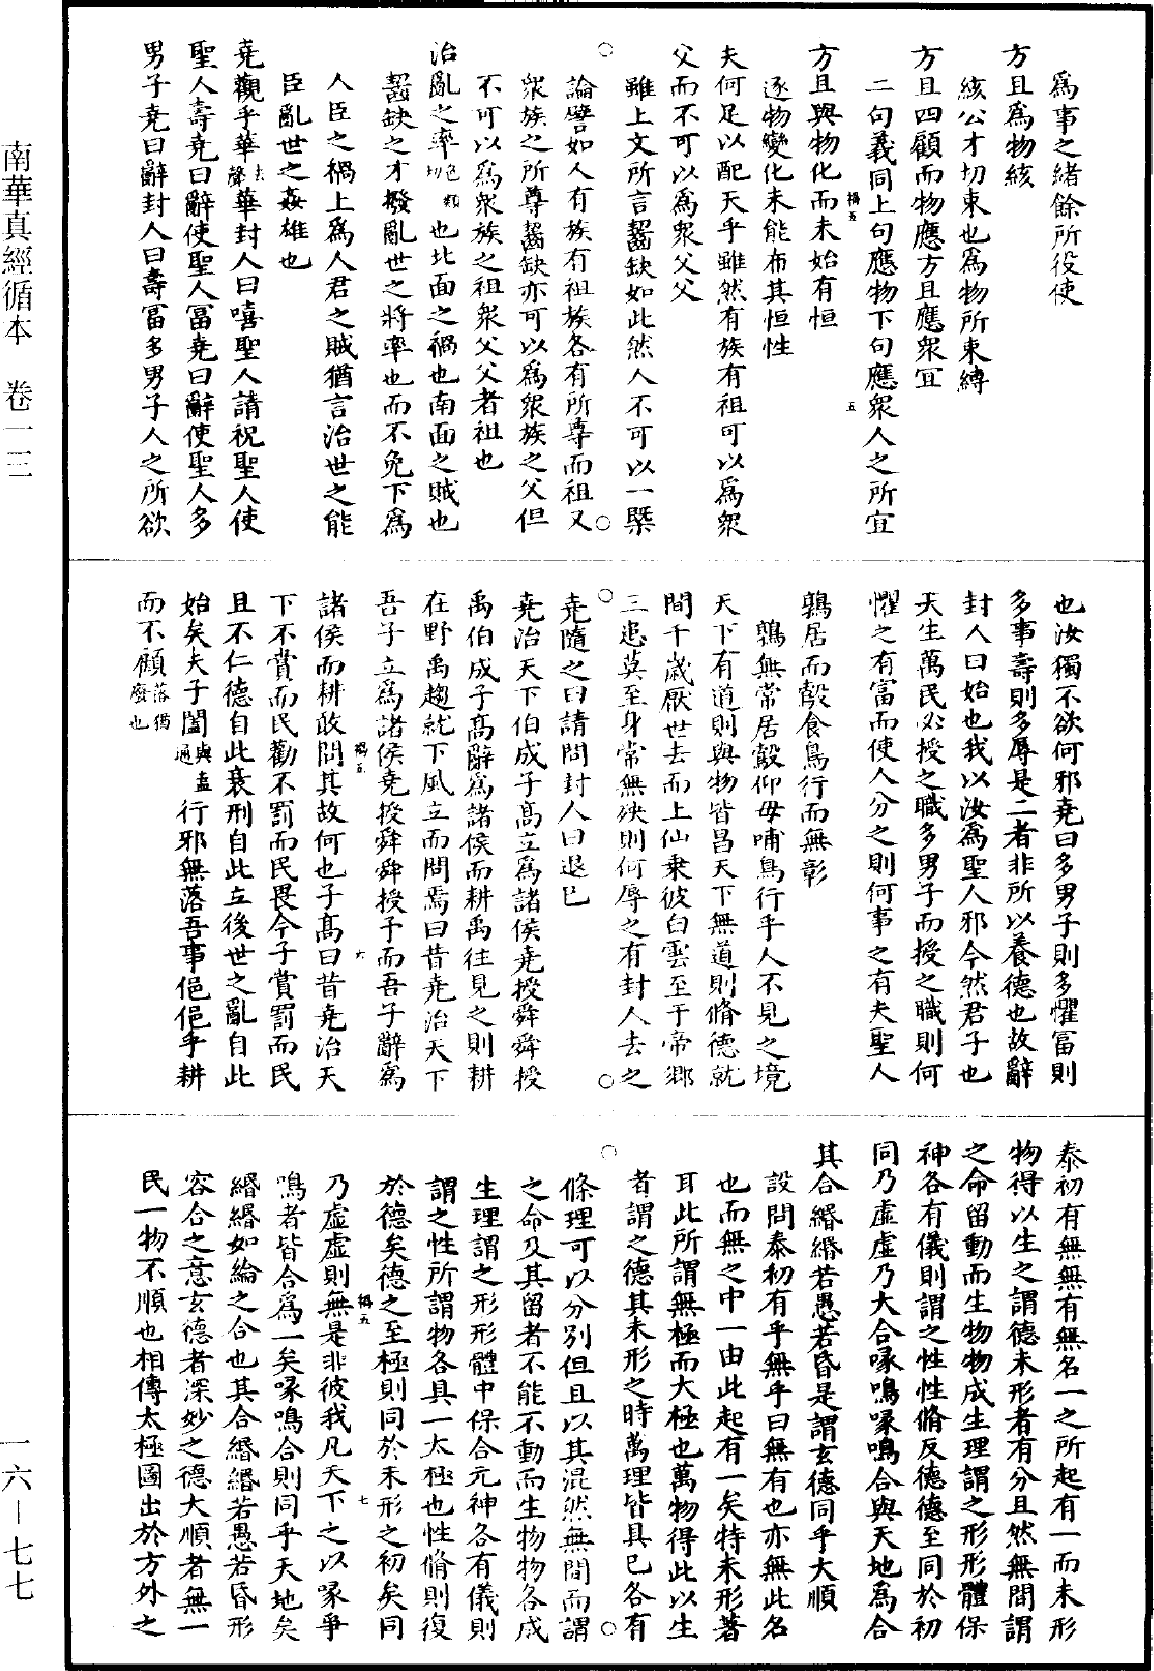 爲事之緒餘所役使
方且爲物絃
絃公才切束也爲物所束縛
方且四顧而物應方且應衆宜
二句義同上句應物下句應衆人之所宜
方且與物化而未始有恒
逐物變化未能布其恒性
夫何足以配天乎雖然有族有祖可以爲衆
父而不可以爲衆父父
雖上文所言齧缺如此然人不可以一槩
論譬如人有族有祖族各有所尊而祖又
衆族之所尊齧缺亦可以爲衆族之父但
不可以爲衆族之祖衆父父者祖也
治亂之率也北面之禍也南面之賊也
齧缺之才撥亂世之將率也而不免下爲
人臣之禍上爲人君之賊猶言治世之能
臣亂世之姦雄也
堯觀乎華去聲華封人曰嘻聖人請祝聖人使
聖人壽堯曰辭使聖人富堯曰辭使聖人多
男子堯曰辭封人曰壽富多男子人之所欲
也汝獨不欲何邪堯曰多男子則多懼富則
多事壽則多辱是二者非所以養德也故辭
封人曰始也我以汝爲聖人邪今然君子也
天生萬民必授之職多男子而授之職則何
懼之有富而使人分之則何事之有夫聖人
鶉居而鷇食鳥行而無彰
鶉無常居鷇仰母哺鳥行乎人不見之境
天下有道則與物皆昌天下無道則脩德就
間千歲厭世去而上仙乘彼白雲至于帝鄉
三患莫至身常無殃則何辱之有封人去之
堯隨之曰請問封人曰退已
堯治天下伯成子髙立爲諸侯堯授舜舜授
禹伯成子髙辭爲諸侯而耕禹往見之則耕
在野禹趨就下風立而問焉曰昔堯治天下
吾子立爲諸侯堯授舜舜授予而吾子辭爲
諸侯而耕敢問其故何也子髙曰昔堯治天
下不賞而民勸不罰而民畏今子賞罰而民
且不仁德自此衰刑自此立後世之亂自此
始矣夫子闔與盍通行邪無落吾事俋俋乎耕
而不顧落猶廢也
泰初有無無有無名一之所起有一而未形
物得以生之謂德未形者有分且然無間謂
之命留動而生物物成生理謂之形形體保
神各有儀則謂之性性脩反德德至同於初
同乃虛虛乃大合喙鳴喙鳴合與天地爲合
其合緡緡若愚若昏是謂玄德同乎大順
設問泰初有乎無乎曰無有也亦無此名
也而無之中一由此起有一矣特未形著
耳此所謂無極而大極也萬物得此以生
者謂之德其未形之時萬理皆具已各有
條理可以分別但且以其混然無間而謂
之命及其留者不能不動而生物物各成
生理謂之形形體中保合元神各有儀則
謂之性所謂物各具一太極也性脩則復
於德矣德之至極則同於未形之初矣同
乃虛虛則無是非彼我凡天下之以喙爭
鳴者皆合爲一矣喙鳴合則同乎天地矣
緡緡如綸之合也其合緡緡若愚若昏形
容合之意玄德者深妙之德大順者無一
民一物不順也相傳太極圖出於方外之
南華真經循本　卷一三
一六—七七